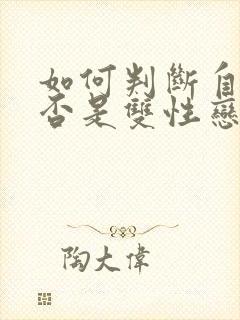 如何判斷自
否是雙性戀
陶大偉